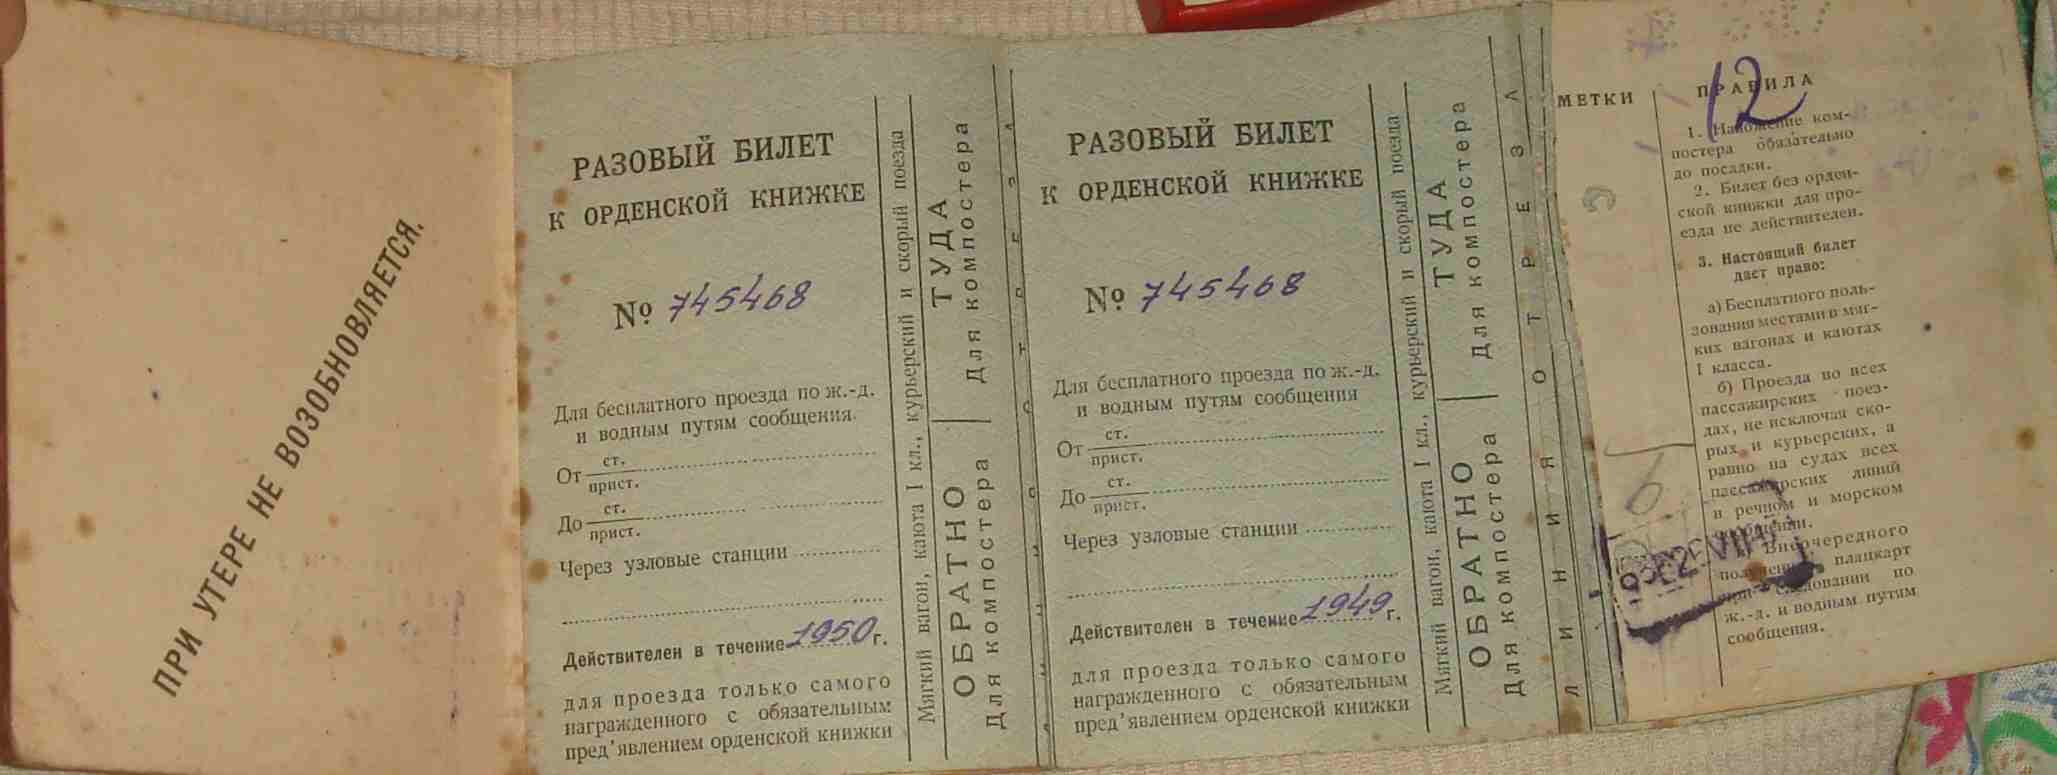 ПРИ УТЕРЕ НЕ ВОЗОБНОВЛЯЕТСЯ.
РАЗОВЫЙ БИЛЕТ
К ОРДЕНСКОЙ КНИЖКЕ
№ 745468
Для бесплатного проезда по ж.-д.
и водным путям сообщения.
От ст.
прист.
До ст.
прист.
Через узловые станции
Действителен в течение 1950 г.
для проезда только самого
награжденного с обязательным
пред'явлением орденской книжки
Мягкий вагон, каюта I кл., курьерский и скорый поезда
ОБРАТНО
Для компостера
ТУДА
Для компостера
РАЗОВЫЙ БИЛЕТ
К ОРДЕНСКОЙ КНИЖКЕ
№ 745468
Для бесплатного проезда по ж.-д.
и водным путям сообщения
От ст.
прист.
До ст.
прист.
Через узловые станции
Действителен в течение 1949 г.
для проезда только самого
награжденного с обязательным
пред'явлением орденской книжки
Мягкий вагон, каюта I кл., курьерский и скорый поезда
ОБРАТНО
Для компостера
ТУДА
Для компостера
ЛИНИЯ ОТРЕЗА
МЕТКИ
12
ПРАВИЛА
1. Наложение ком-
постера обязательно
до посадки.
2. Билет без орден-
ской книжки для про-
езда не действителен.
3. Настоящий билет
дает право:
а) Бесплатного поль-
зования местами в мяг-
ких вагонах и каютах
I класса.
б) Проезда во всех
пассажирских поез-
дах, не исключая ско-
рых и курьерских, а
равно на судах всех
пассажирских линий
в речном и морском
сообщении.
Внеочередного
получения плацкарт
при следовании по
ж.-д. и водным путям
сообщения.